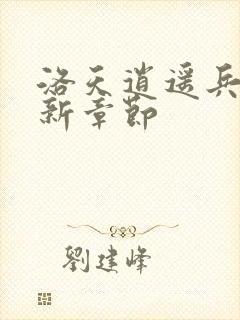 洛天逍遥兵
新章節
劉建峰